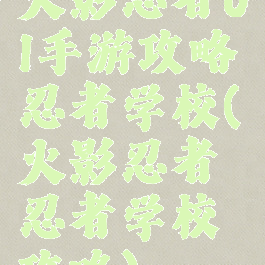 火影忍者O
l手游攻略
忍者学校(
火影忍者
忍者学校
攻略)